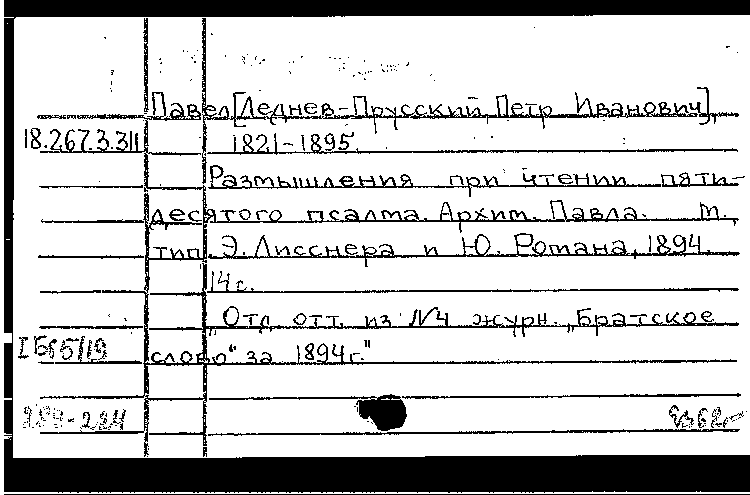 Павел [Леднев-Прусский, Петр Иванович],
18.267.3.311 1821-1895.
Размышления при чтении пяти-
десятого псалма. Архим. Павла. М.,
тип. Э. Лисснера и Ю. Романа, 1894.
14 с.
„Отд. отт. из №4 журн. „Братское
слово“ за 1894 г.“
289-224